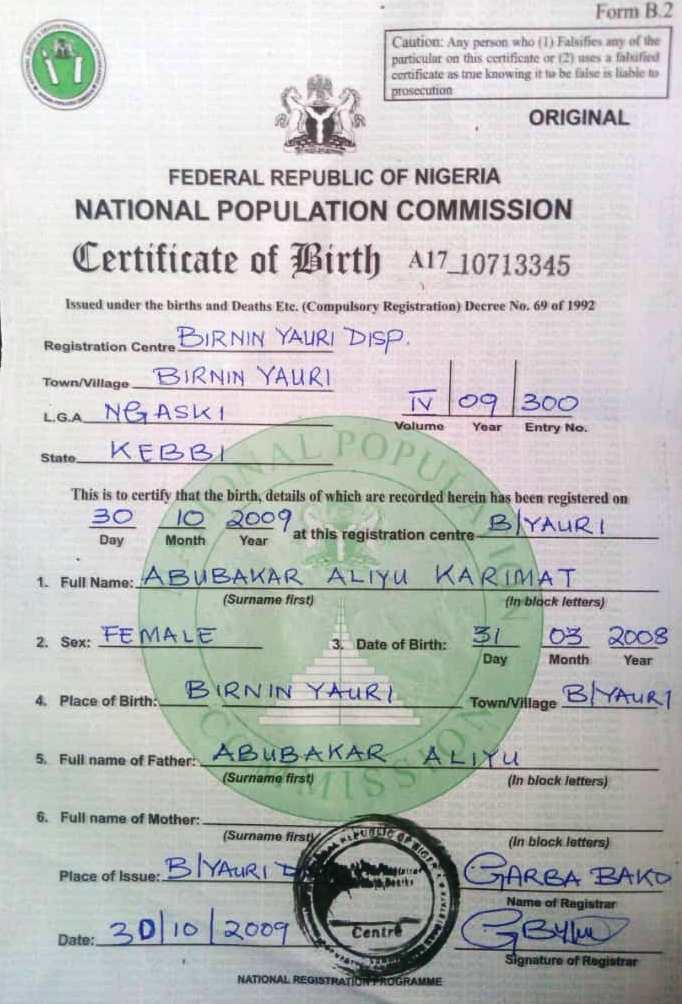 Form B.2
Caution: Any person who (1) Falsifies any of the
particular on this certificate or (2) uses a falsified
certificate as true knowing it to be false is liable to
prosecution
ORIGINAL
FEDERAL REPUBLIC OF NIGERIA
NATIONAL POPULATION COMMISSION
Certificate of Birth A17_10713345
Issued under the births and Deaths Etc. (Compulsory Registration) Decree No. 69 of 1992
Registration Centre BIRNIN YAURI DISP.
Town/Village BIRNIN YAURI
IV 09 300
L.G.A. NGASKI
Volume Year Entry No.
State KEBBI
This is to certify that the birth, details of which are recorded herein has been registered on
30 10 2009 at this registration centre B/YAURI
Day Month Year
1. Full Name: ABUBAKAR ALIYU KARIMAT
(Surname first) (In block letters)
2. Sex: FEMALE 3. Date of Birth: 31 03 2008
Day Month Year
4. Place of Birth: BIRNIN YAURI Town/Village B/YAURI
5. Full name of Father: ABUBAKAR ALIYU
(Surname first) (In block letters)
6. Full name of Mother:
(Surname first) (In block letters)
Place of Issue: B/YAURI GARBA BAKO
Name of Registrar
Date: 30/10/2009
Centre
Signature of Registrar
NATIONAL REGISTRATION PROGRAMME
NATIONAL POPULATION COMMISSION